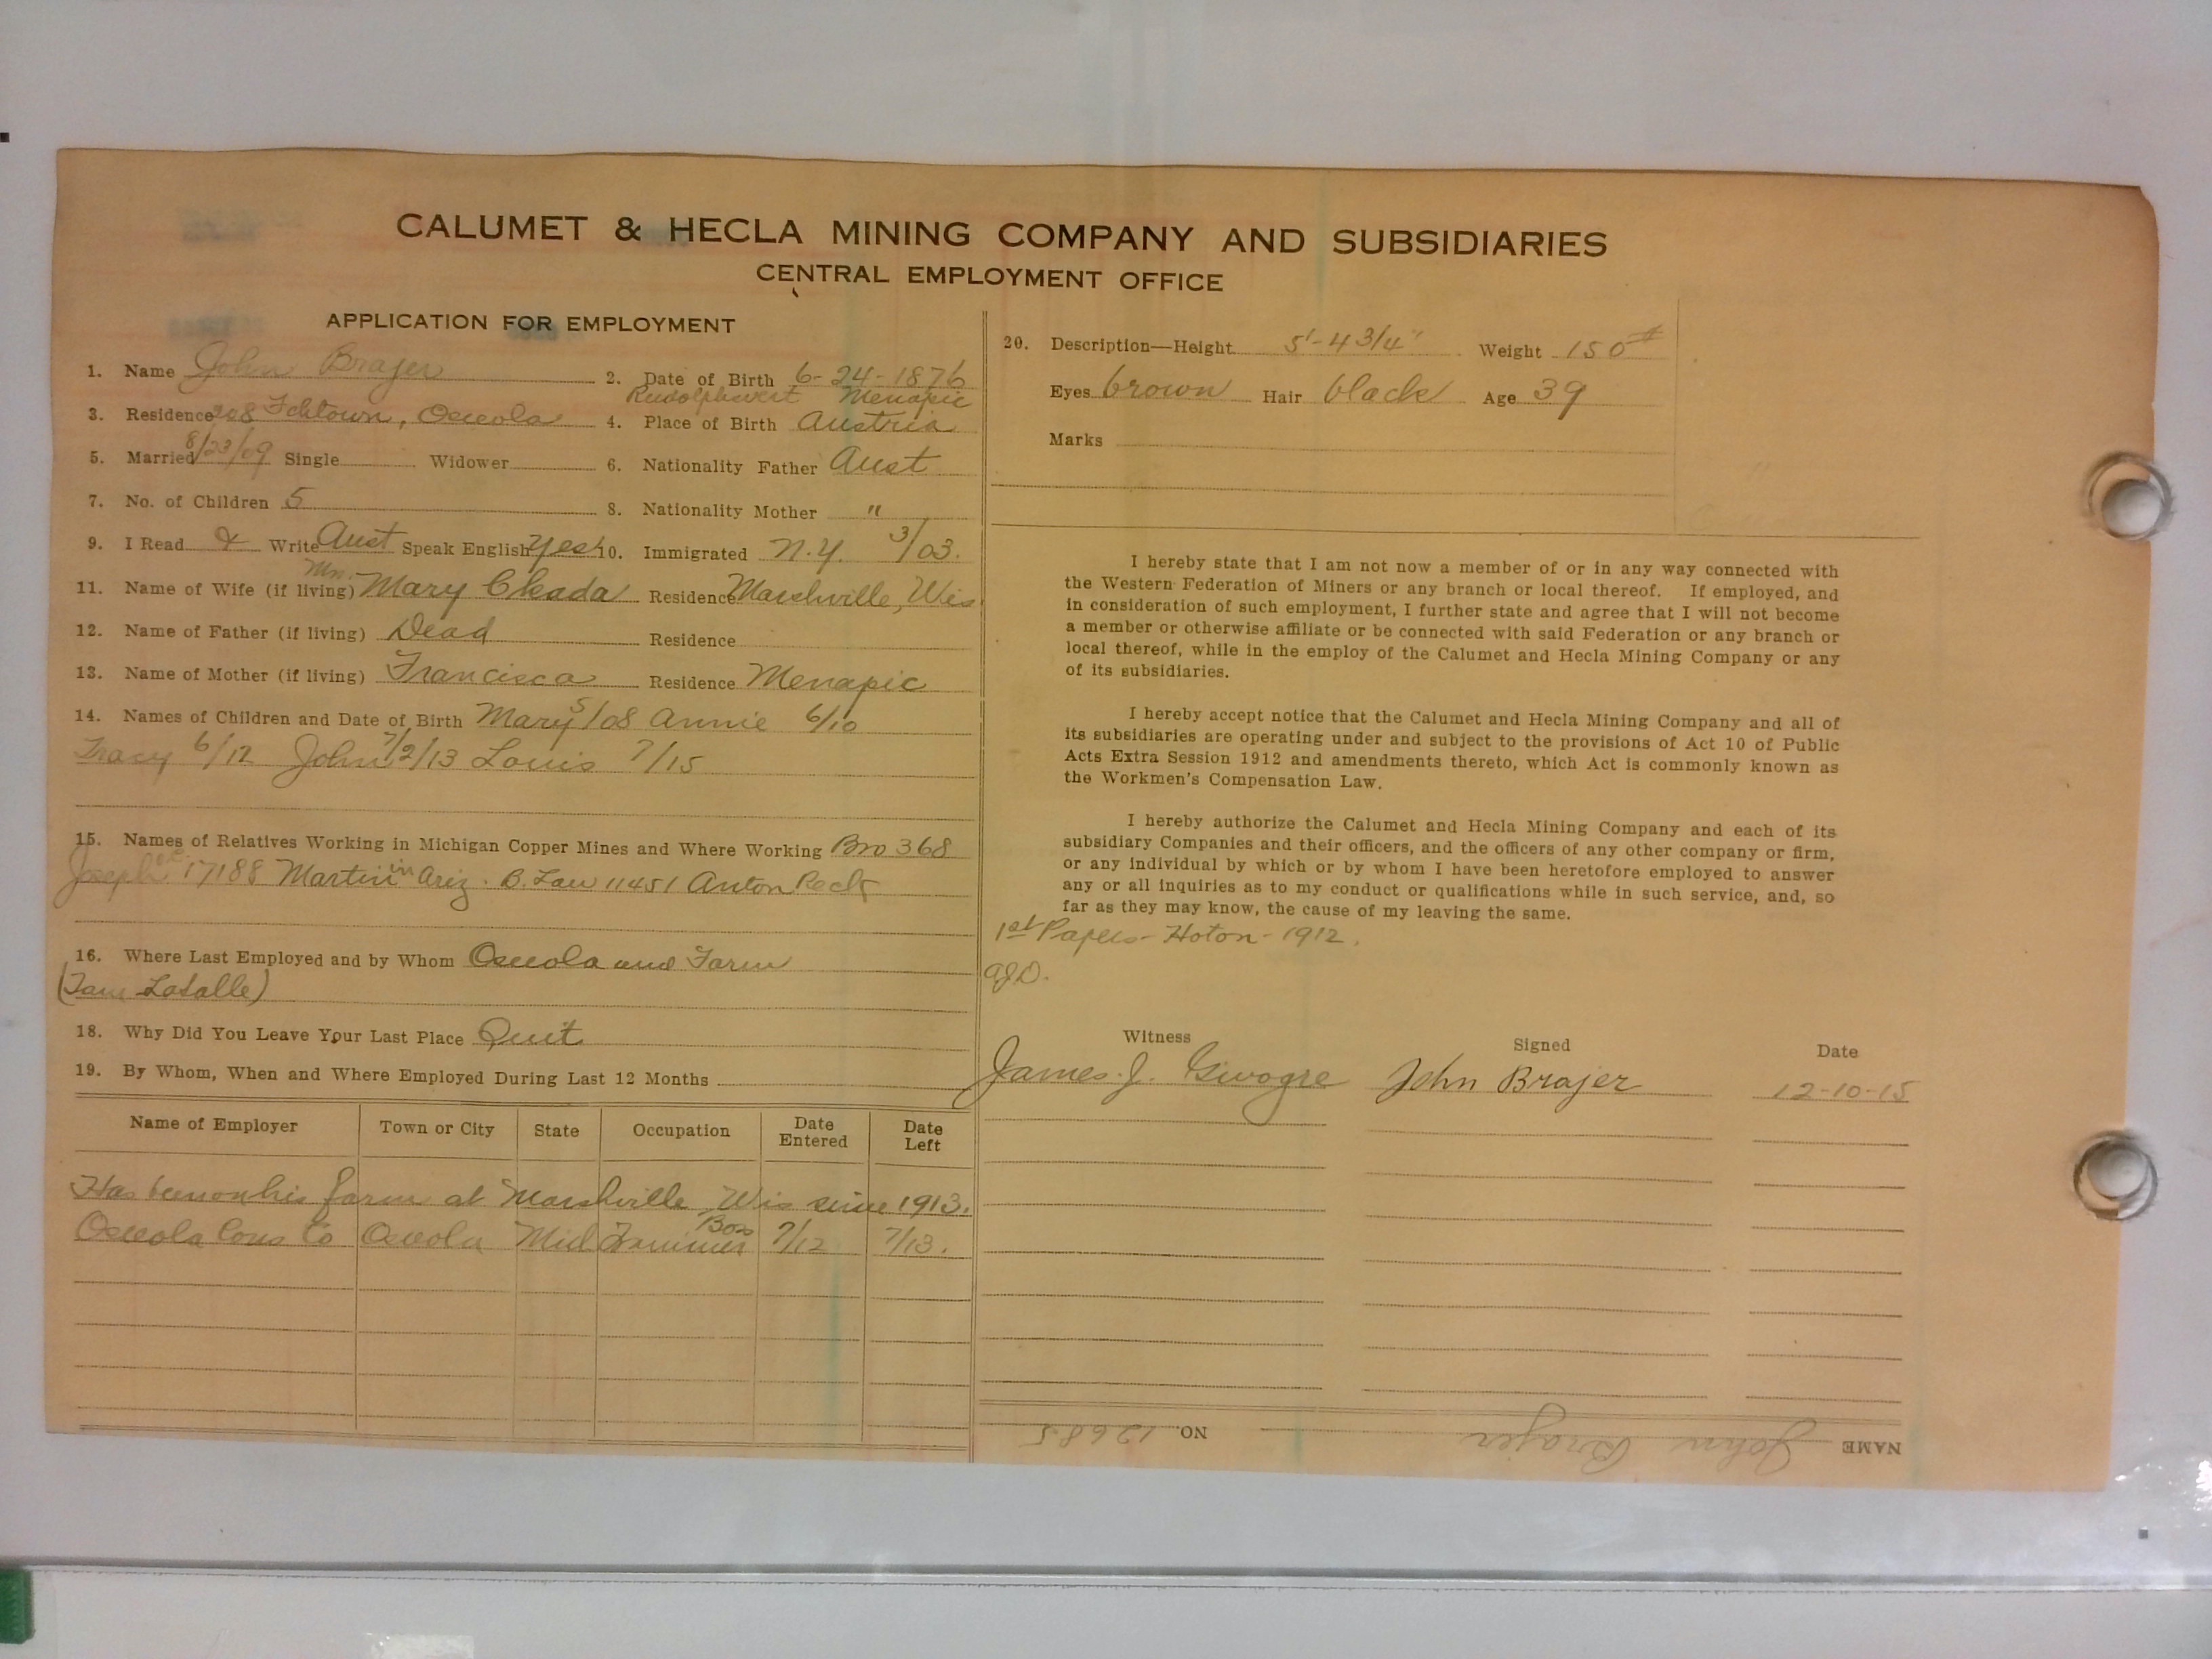 CALUMET & HECLA MINING COMPANY AND SUBSIDIARIES
CENTRAL EMPLOYMENT OFFICE
APPLICATION FOR EMPLOYMENT
1. Name John Brajer 2. Date of Birth 6-24-1876
Menapic
3. Residence Osceola 4. Place of Birth Austria
5. Married 8/23/09 Single Widower 6. Nationality Father Aust
7. No. of Children 5 8. Nationality Mother "
9. I Read & Write Aust Speak English Yes 10. Immigrated N.Y. 3/03.
11. Name of Wife (if living) Mary Residence Marshville, Wis
12. Name of Father (if living) Dead Residence
13. Name of Mother (if living) Francisca Residence Menapic
14. Names of Children and Date of Birth Mary 5/08 Annie 6/10
Tracy 6/12 John 7/2/13 Louis 7/15
15. Names of Relatives Working in Michigan Copper Mines and Where Working Bro 368
Joseph 17188 Martin in Ariz. B. Law 11451 Anton
16. Where Last Employed and by Whom Osceola and Farm
(Tam LaSalle)
18. Why Did You Leave Your Last Place Quit
19. By Whom, When and Where Employed During Last 12 Months
Name of Employer Town or City State Occupation Date Entered Date Left
Has been on his farm at Marshville, Wis since 1913.
Osceola Cons Co Osceola Mich Trammer Bos 7/12 7/13.
20. Description—Height 5'-4 3/4" Weight 150#
Eyes brown Hair black Age 39
Marks
I hereby state that I am not now a member of or in any way connected with
the Western Federation of Miners or any branch or local thereof. If employed, and
in consideration of such employment, I further state and agree that I will not become
a member or otherwise affiliate or be connected with said Federation or any branch or
local thereof, while in the employ of the Calumet and Hecla Mining Company or any
of its subsidiaries.
I hereby accept notice that the Calumet and Hecla Mining Company and all of
its subsidiaries are operating under and subject to the provisions of Act 10 of Public
Acts Extra Session 1912 and amendments thereto, which Act is commonly known as
the Workmen's Compensation Law.
I hereby authorize the Calumet and Hecla Mining Company and each of its
subsidiary Companies and their officers, and the officers of any other company or firm,
or any individual by which or by whom I have been heretofore employed to answer
any or all inquiries as to my conduct or qualifications while in such service, and, so
far as they may know, the cause of my leaving the same.
1st Papers - Hoton - 1912.
Witness Signed Date
James J. John Brajer 12-10-15
NAME John Brajer NO. 12685